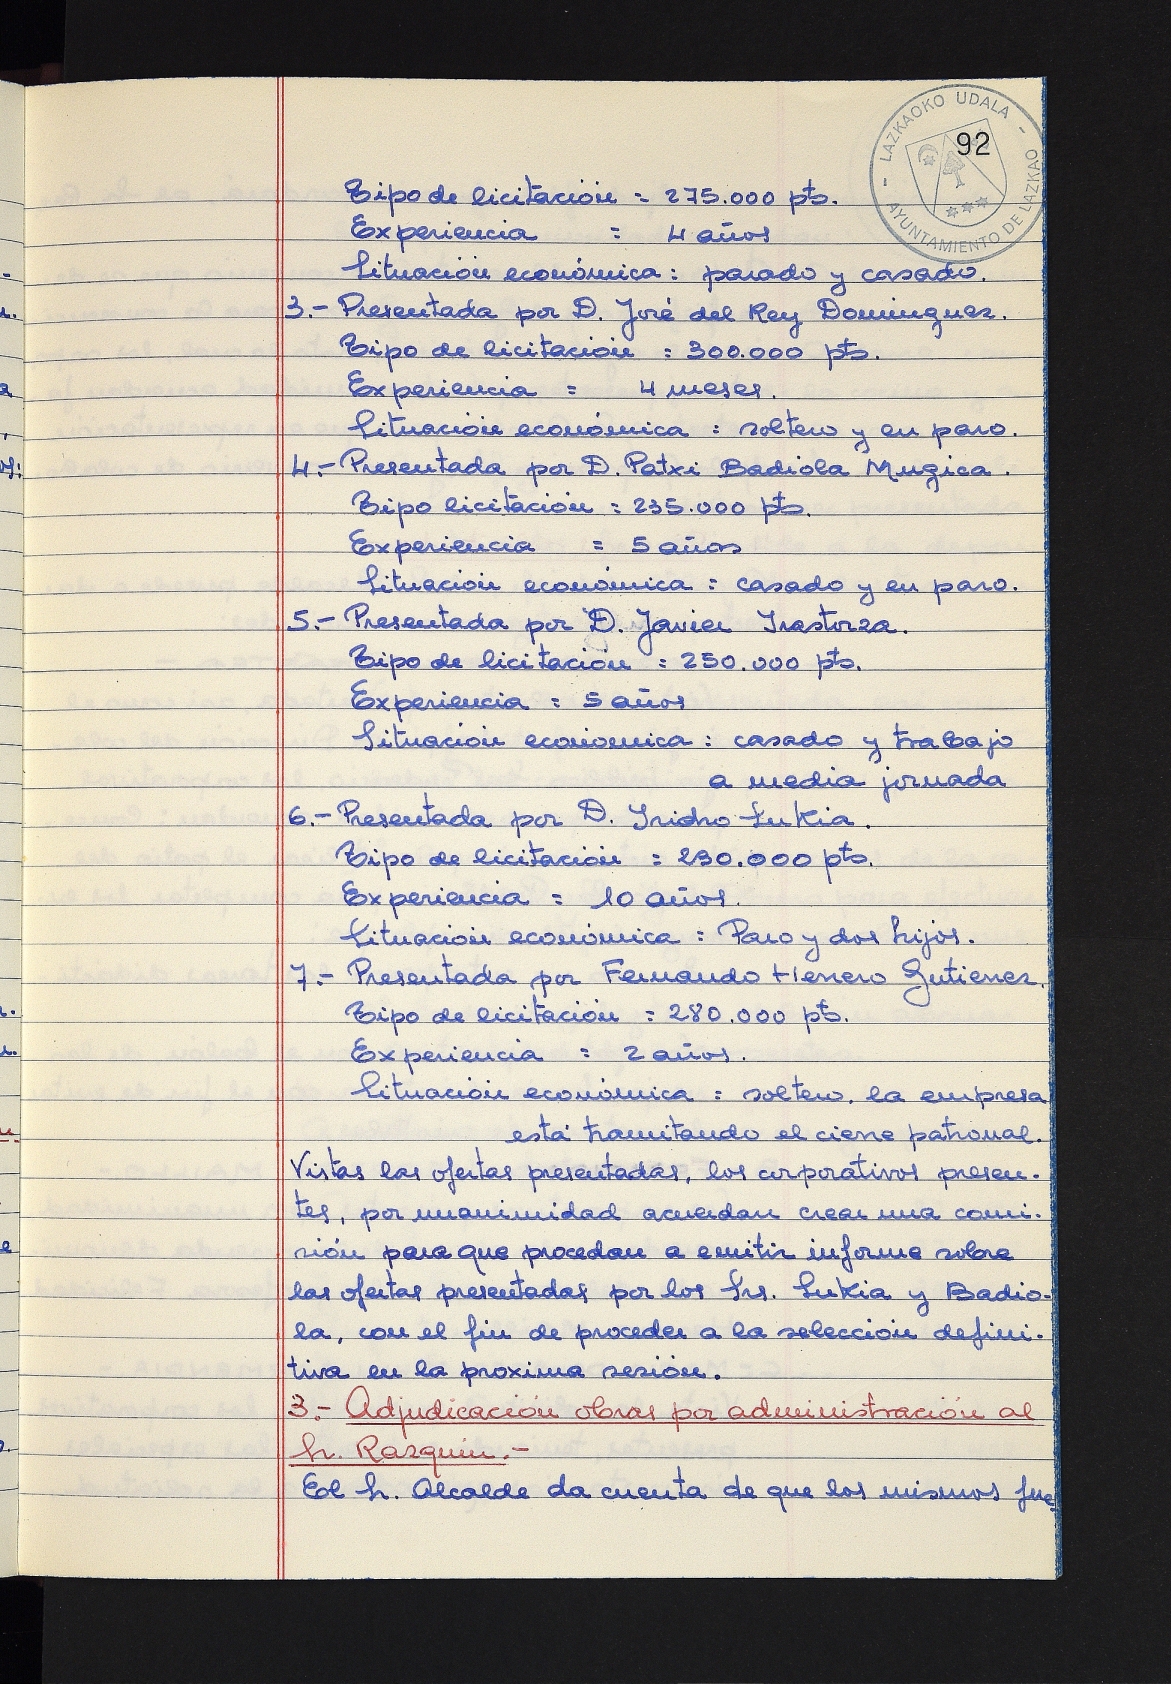 LAZKAOKO UDALA - AYUNTAMIENTO DE LAZKAO -
92
Tipo de licitación = 275.000 pts.
Experiencia = 4 años
Situación económica : parado y casado.
3.- Presentada por D. José del Rey Dominguez.
Tipo de licitación : 300.000 pts.
Experiencia = 4 meses.
Situación económica : soltero y en paro.
4.- Presentada por D. Patxi Badiola Mugica.
Tipo licitación : 235.000 pts.
Experiencia = 5 años
Situación económica : casado y en paro.
5.- Presentada por D. Javier Irastorza.
Tipo de licitación : 250.000 pts.
Experiencia = 5 años
Situación economica : casado y trabajo
a media jornada
6.- Presentada por D. Isidro Lukia.
Tipo de licitación : 230.000 pts.
Experiencia = 10 años.
Situación económica : Paro y dos hijos.
7.- Presentada por Fernando Herrero Gutierrez.
Tipo de licitación : 280.000 pts.
Experiencia = 2 años.
Situación económica : soltero, la empresa
está tramitando el cierre patronal.
Vistas las ofertas presentadas, los corporativos presen-
tes, por unanimidad acuerdan crear una comi-
sión para que procedan a emitir informe sobre
las ofertas presentadas por los Srs. Lukia y Badio-
la, con el fin de proceder a la selección defini-
tiva en la proxima sesión.
3.- Adjudicación obras por administración al
Sr. Razquin.-
El Sr. Alcalde da cuenta de que los mismos fue